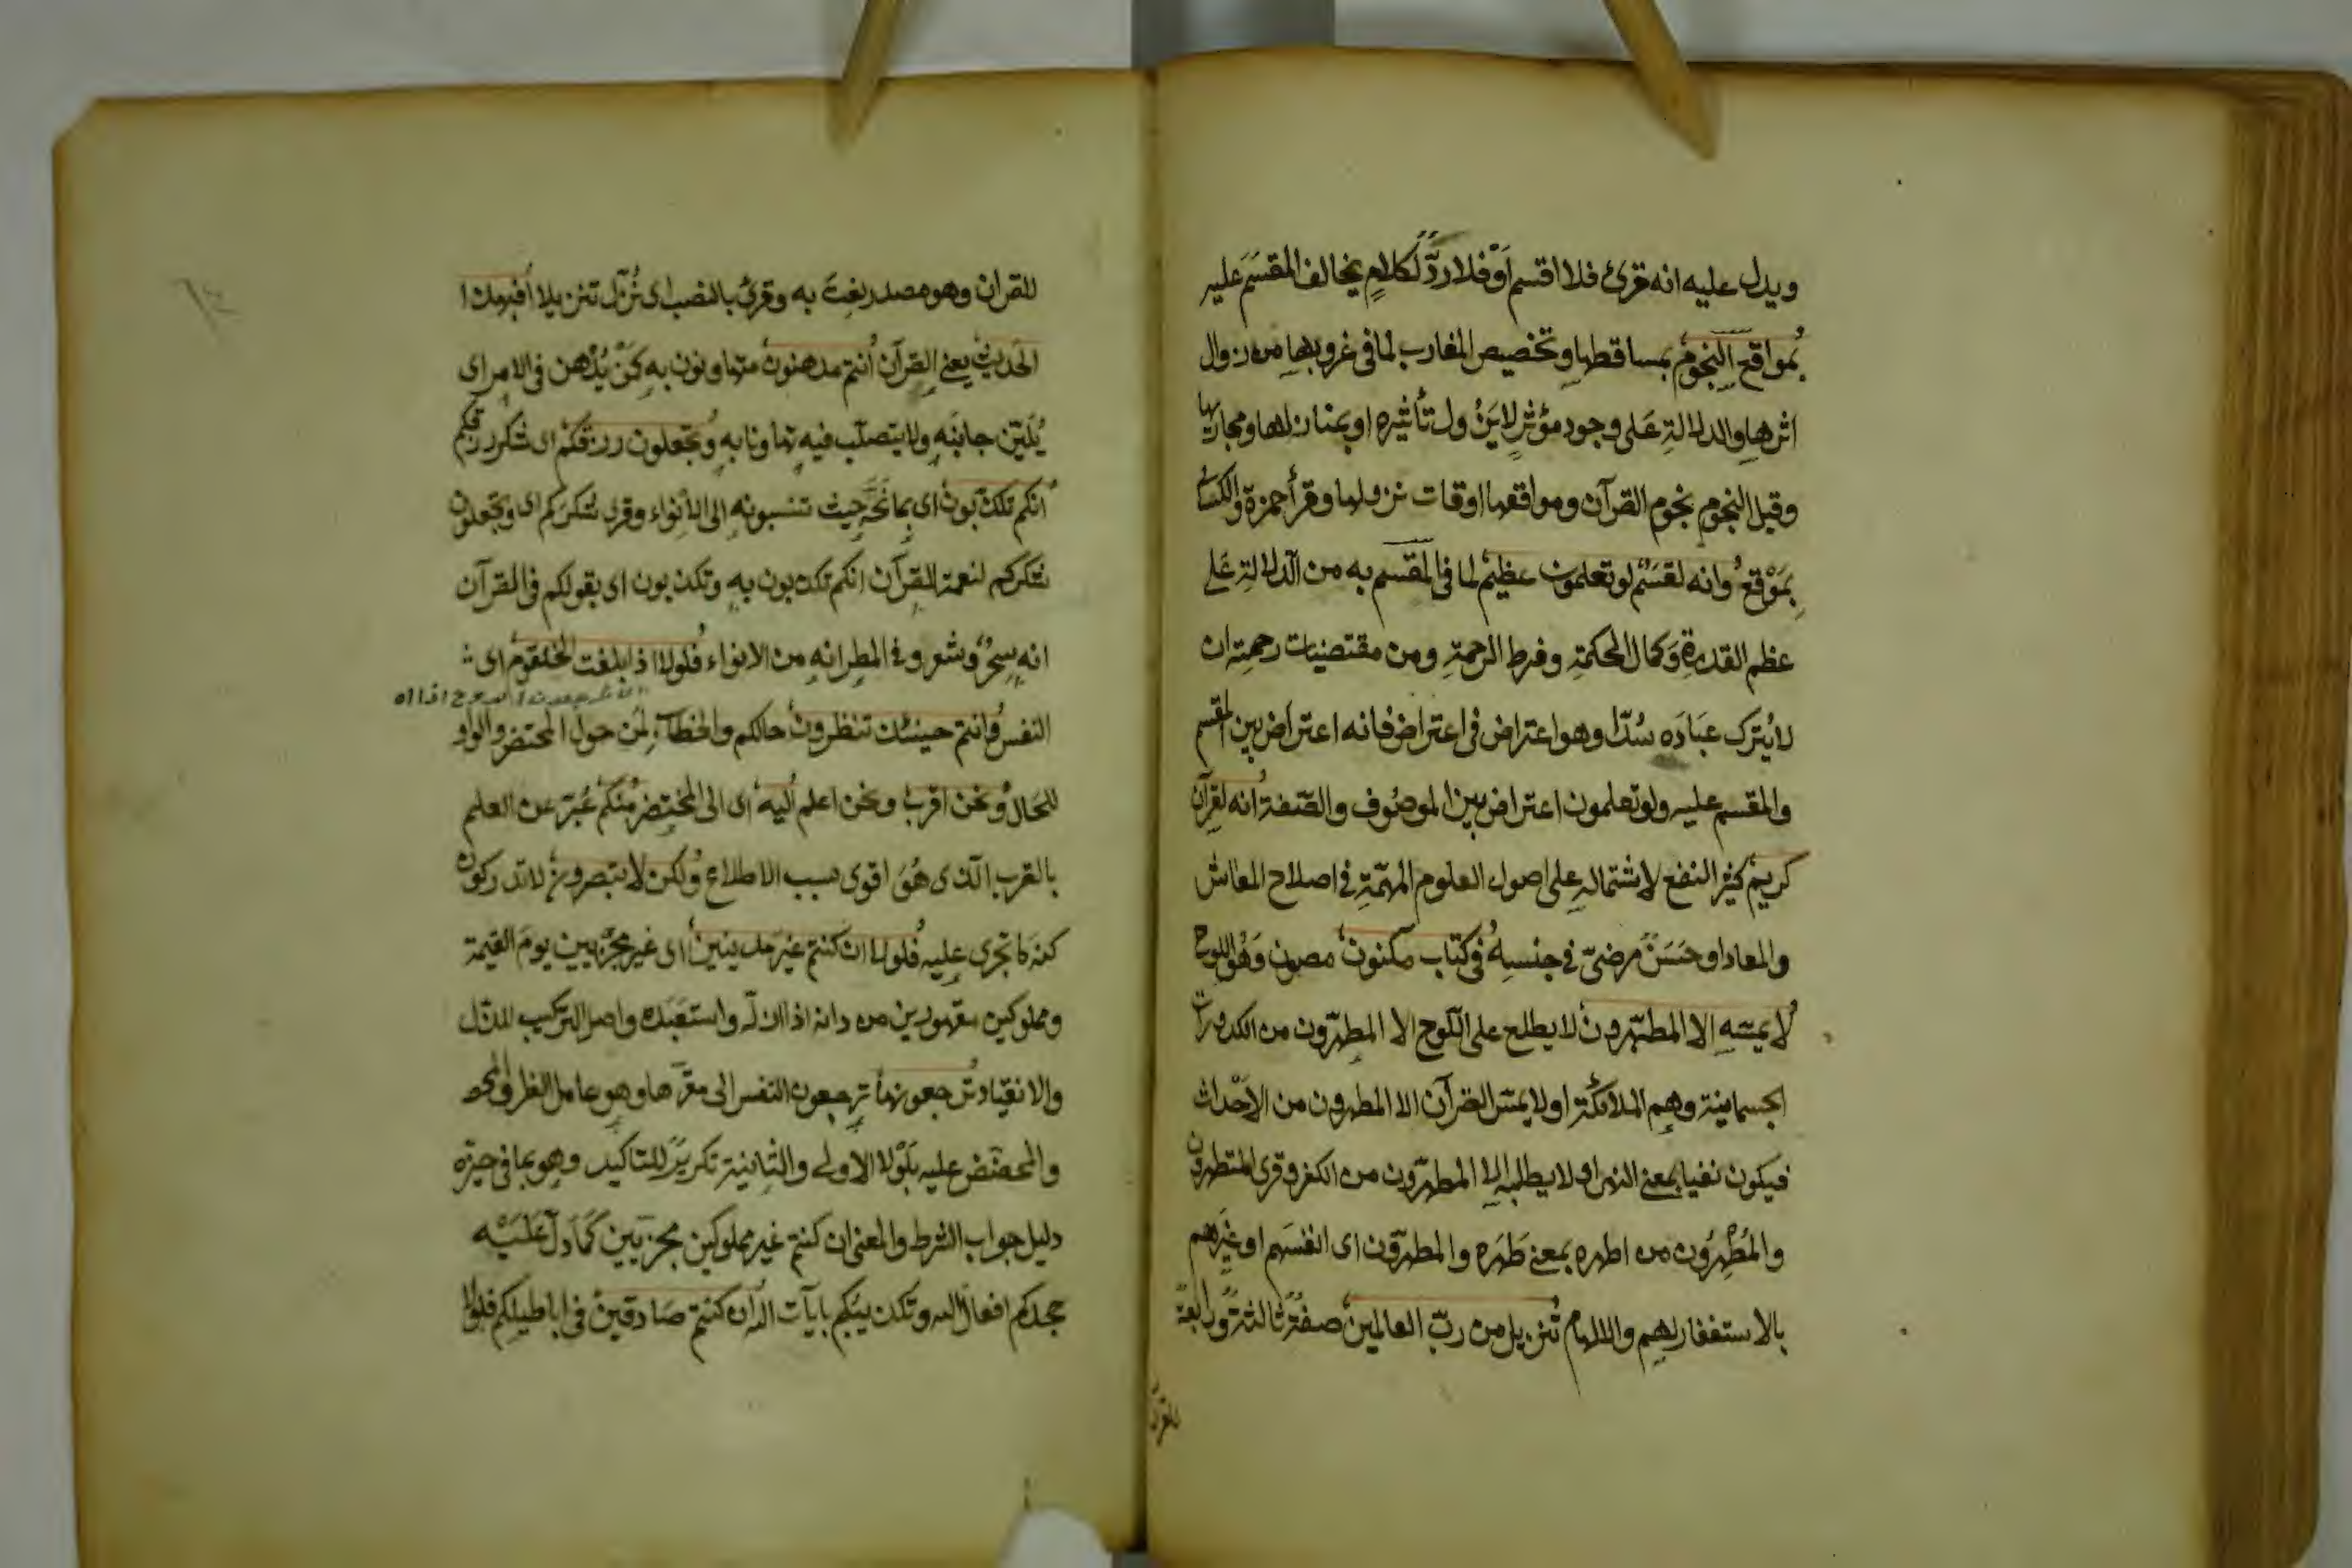 ويدل عليه انه قرئ فلا اقتسم او فلا ردّ لكلامٍ يخالف المقسَم عليه
بمواقع النجوم بمساقطها وتخصيص المغارب لما في غروبها من زوال
اثرها والدلالة عَلى وجود مؤثرٍ لايَزُول تأثيره او بمنازلها ومجاريها
وقيل النجوم نجوم القرآن ومواقعها اوقات نزولها وقرأ حمزة والكسائى
بمَوْقع وانه لقسَمٌ لو تعلمون عظيم لما في المقسم به من الدلالة عَلى
عظم القدرة وَكمال الحكمة وفرط الرحمة ومن مقتضيات رحمته ان
لايُترك عبَادَه سُدًا وهو اعتراض في اعتراض فانه اعتراض بين القسم
والمقسم عليه ولو تعلمون اعتراض بين الموصُوف والصّفة انه لقرآن
كريم كثير النفع لاشتماله على اصول العلوم المهمّة في اصلاح المعاش
والمعاد او حَسَنٌ مرضىّ في جنسه في كتاب مكنون مصون وَهُو اللوح
لا يمسّه الا المطهّرون لا يطلع على اللّوح الا المطهّرون من الكدورات
الجسمانية وهم الملائكة او لا يمسّ القرآن الا المطهرون من الاَحْداث
فيكون نفيا بمعنى النهى او لا يطلبه الا المطهّرون من الكفر وقرئ المتطهرون
والمُطْهِرُون من اطهره بمعنى طَهّره والمطهّرون اى انفسَهم او غيَرهم
بالاستغفار لهم والالهام تنزيل من ربّ العالمين صفةٌ ثالثةٌ ورابعةٌ
للقرآن
للقرآن وهو مصدر نعِت به وقرئ بالنصب اى نُزّل تنزيلا أفبهذا
الحديث يعنى القرآن أنتم مدهنون متهاونون به كَمَنْ يُدْهن في الامر اى
يُلَيّن جانبَه ولا يتصلّب فيه تهاونا به وتجعلون رزقكمْ اى شكر رزقكم
انكم تكذّبون اى بمانحه حيث تنسبونه الى الاَنْواء وقرى شكركم اى وتجعلون
شكركم لنعمة القرآن انكم تكذبون به وتكذبون اى بقولكم في القرآن
انه سِحْرٌ وشعر وفي المطر انه من الانواء فلولا اذا بلغت الحلقوم اى
النفس وانتم حينئذ تنظرون حالكم والخطاب لمن حول المحتضر والواو
للحَال ونحن اقرب ونحن اعلم اليه اى الى المحتضر منكم عُبّر عن العلم
بالقرب الّذى هُوَ اقوى سبب الاطلاع ولكن لا تبصرون لا تدركون
كنه ما تجرى عليه فلولا ان كنتم غيرَ مدينين اى غير مجزيين يومَ القيمة
ومملوكين مقهورين من دانه اذا اذلّه واستعبَده واصل التركيب للذل
والانقياد ترجعونها ترجعون النفس الى مقرّها وهو عامل الظرف والمحض
والمحضّض عليه بلَوْلا الاولى والثانية تكريرٌ للتاكيد وهو بما في حيزه
دليل جواب الشرط والمعنى ان كنتم غير مملوكين مجزيين كمَا دلّ عَلَيْه
جحدكم افعال الله وتكذيبكم بايآت الله ان كنتم صَادقين في اباطيلكم فلولا